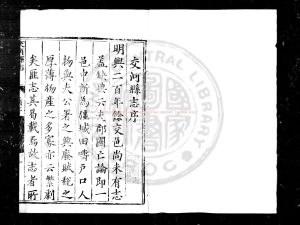 交河縣志序
明興二百年餘交邑尚未有志
蓋缺典六夫郡國亡論即一
邑中所為疆域田疇戶口人
物與夫公署之興廢賦稅之
厚薄物產之多寡亦云繁劇
矣匪志其曷載焉故志者所